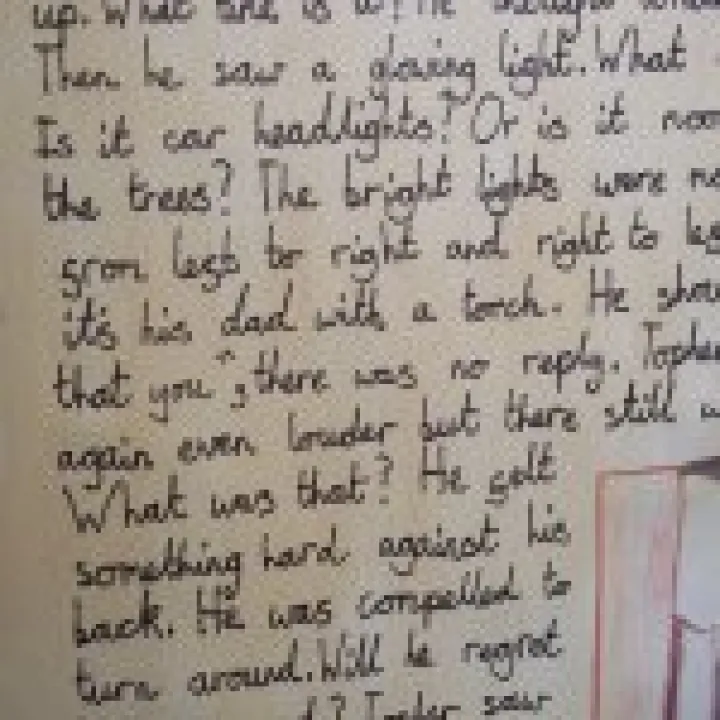 up. What time is it? He thought
Then he saw a glowing light. What
Is it car headlights? Or is it
the trees? The bright lights were
from left to right and right to
it's his dad with a torch. He
that you", there was no reply.
again even louder but there still
What was that? He felt
something hard against his
back. He was compelled to
turn around. Will he regret
saw